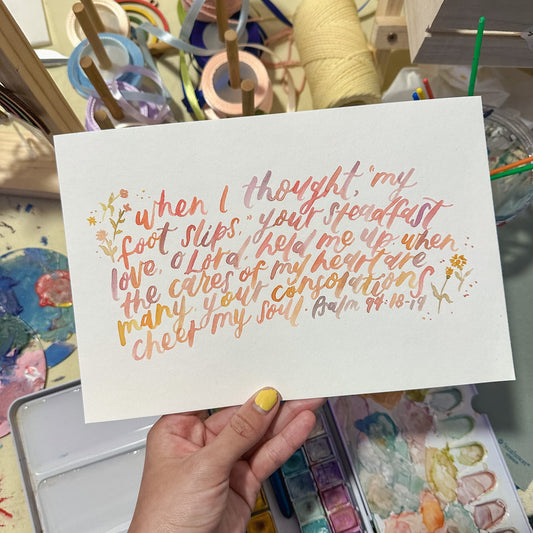 when I thought, "my
foot slips," your steadfast
love, O Lord, held me up. when
the cares of my heart are
many, your consolations
cheer my soul. Psalm 94:18-19